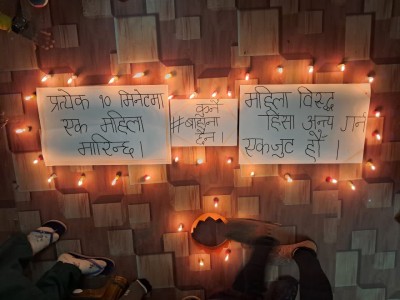 प्रत्येक १० मिनेटमा
एक महिला
मारिन्छ।
कुनै
#बाहाना
हुन्न।
महिला विरुद्ध
हिंसा अन्त्य गर्न
एकजुट हौँ।